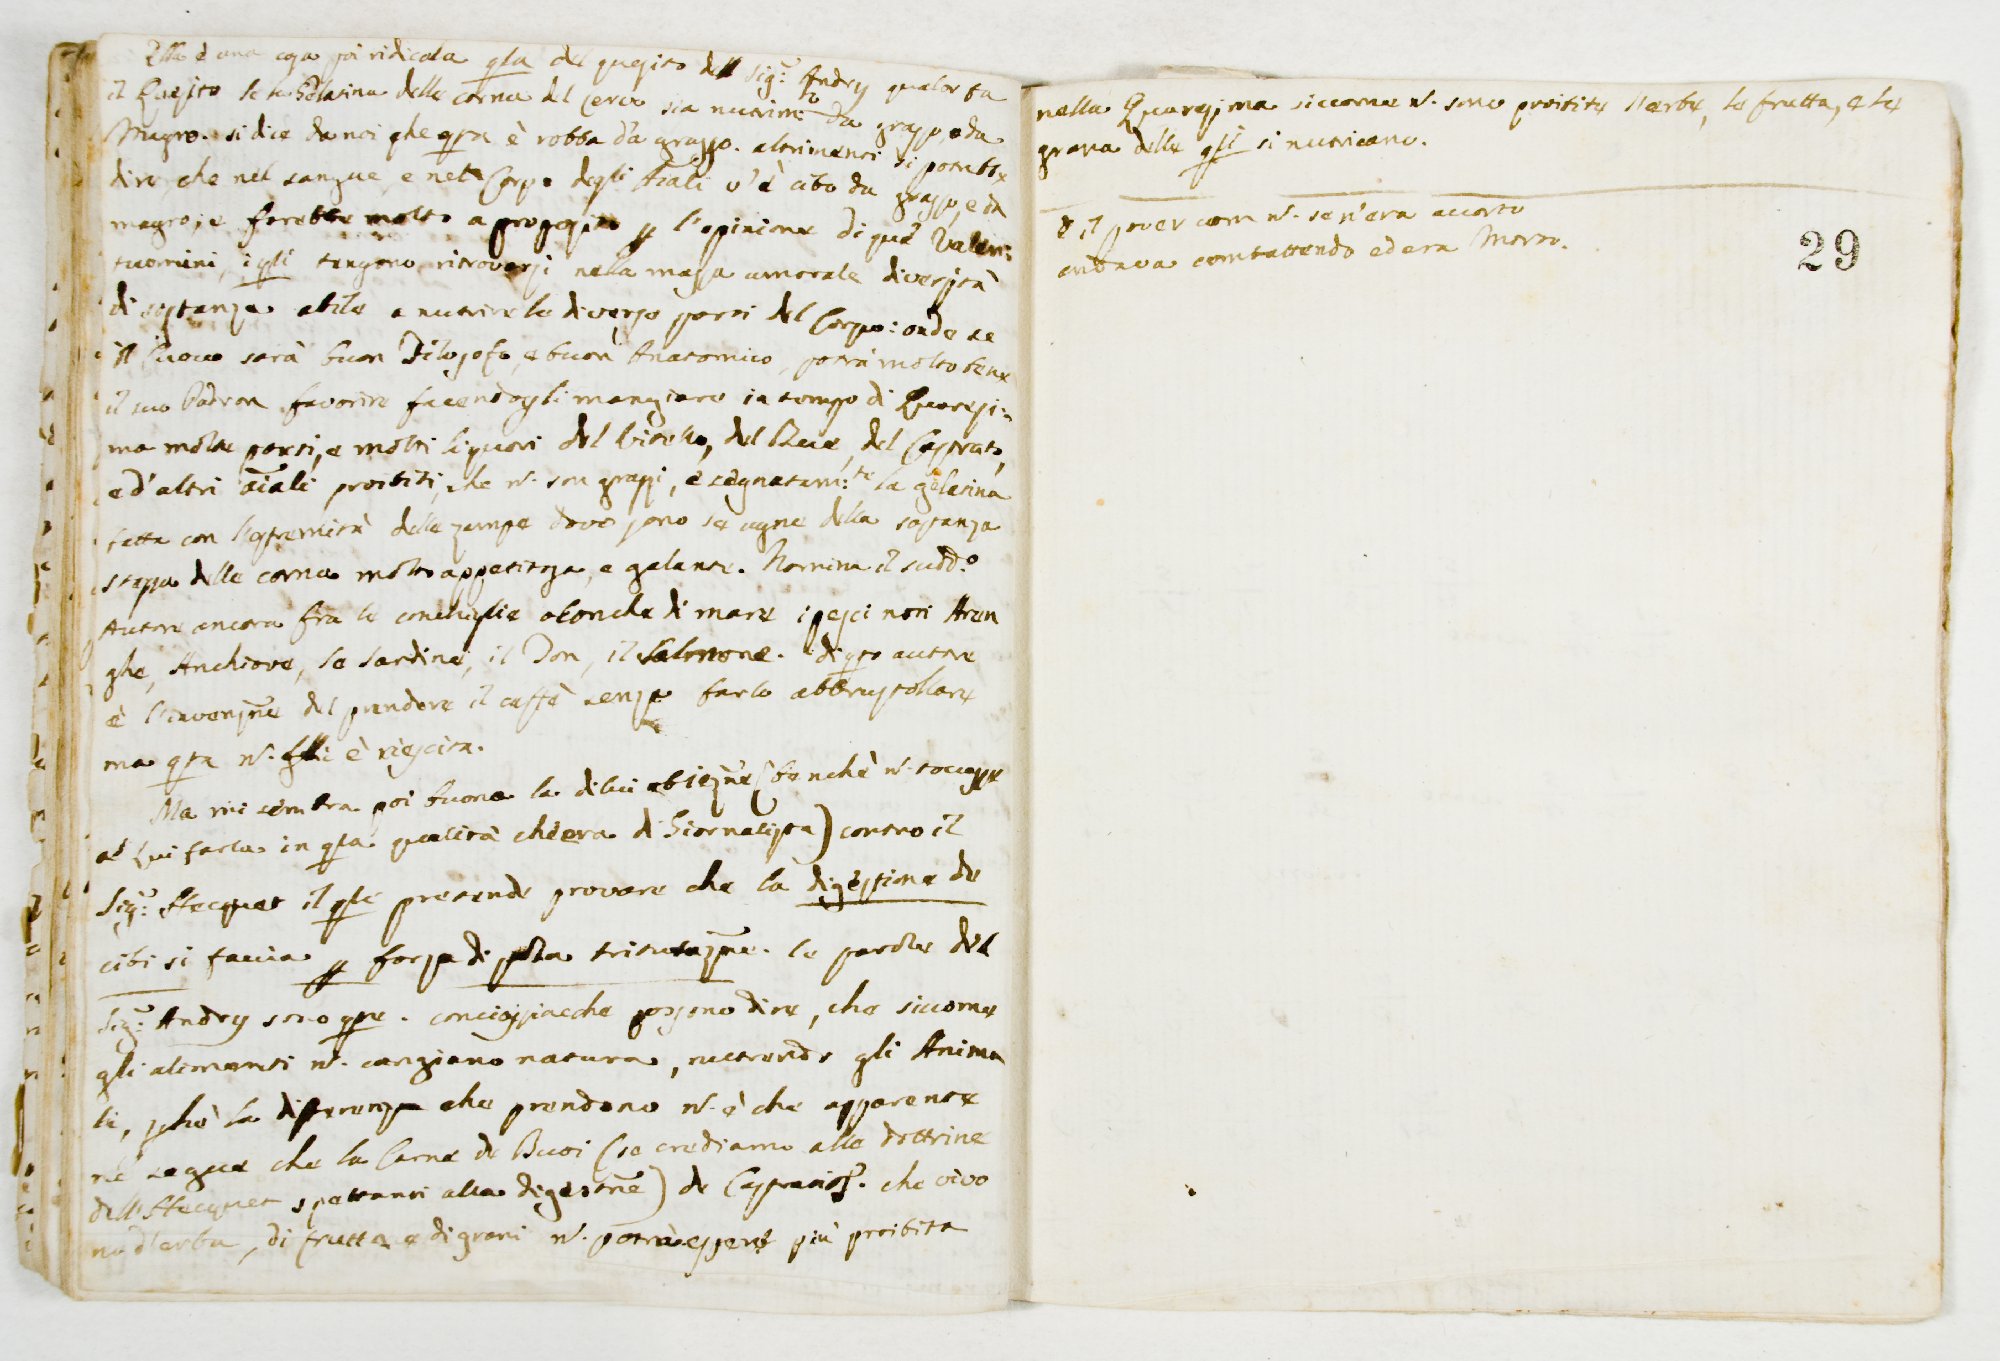 Ella è una cosa poi ridicola qlla del quesito dell Sig.r Andry qualor fa
il Quesito se la Gelatina delle corna del cervo sia nutrim.to da grasso, e da
Magro. si dice da noi che qsta è robba da grasso. altrimenti si potrebbe
dire che nel sangue e nel Corpo degli Aiali v'è cibo da grasso, e da
magro, e sarebbe molto a proposito p l'opinione di que' Valen:
tuomini, i qli tengono ritrovarsi nella massa umorale diversità
di sostanze abile a nutrire le diverse parti del Corpo: onde se
il Cuoco sarà buon Filosofo, e buon Anatomico, potrà molto bene
il suo Padron favorire facendogli mangiare in tempo di Quaresi:
ma molte parti, e molti liquori del Vitello, del Bue, del Castrato,
ed' altri aiali proibiti, che n. son grassi, e segnatam.te la gelatina
fatta con l'estremità delle zampe dove sono le ugne della sostanza
stessa delle corna molto appetitosa, e galante. Nomina il sudd.o
Autore ancora fra le conchiglie o Conche di mare i pesci noti Aren
ghe, Anchiove, le sardine, il Ton, il Salomone. di qsto autore
è l'invenzne del prendere il caffè senza farlo abbrustollare
ma qsta n. gli è riescita.
Ma mi sembra poi buona la dilui obiezne (benchè n. toccasse
a lui farla in qlla qualità ch'era di Giornalista) contro il
Sig.r Hecquet il qle pretende provare che la digestione de
cibi si faccia p forza di sola triturazne. le parole del
Sig.r Andry sono qste. conciossiacche possono dire, che siccome
gli alimenti n. cangiano natura, nutrendo gli Anima
li, pchè la differenza che prendono n. è che apparente
ne segue che la Carne de Buoi (se crediamo alle dottrine
dell'Hecquet spettanti alla digestne) de Castrati che vivo
no d'erba, di frutta e di grani n. potrà essere più proibita
nella Quaresima siccome n. sono proibite l'erbe, le frutta, e le
grana delle qli si nutricano.
e il pover uom n. se n'era accorto
andava combattendo ed era Morto.
29